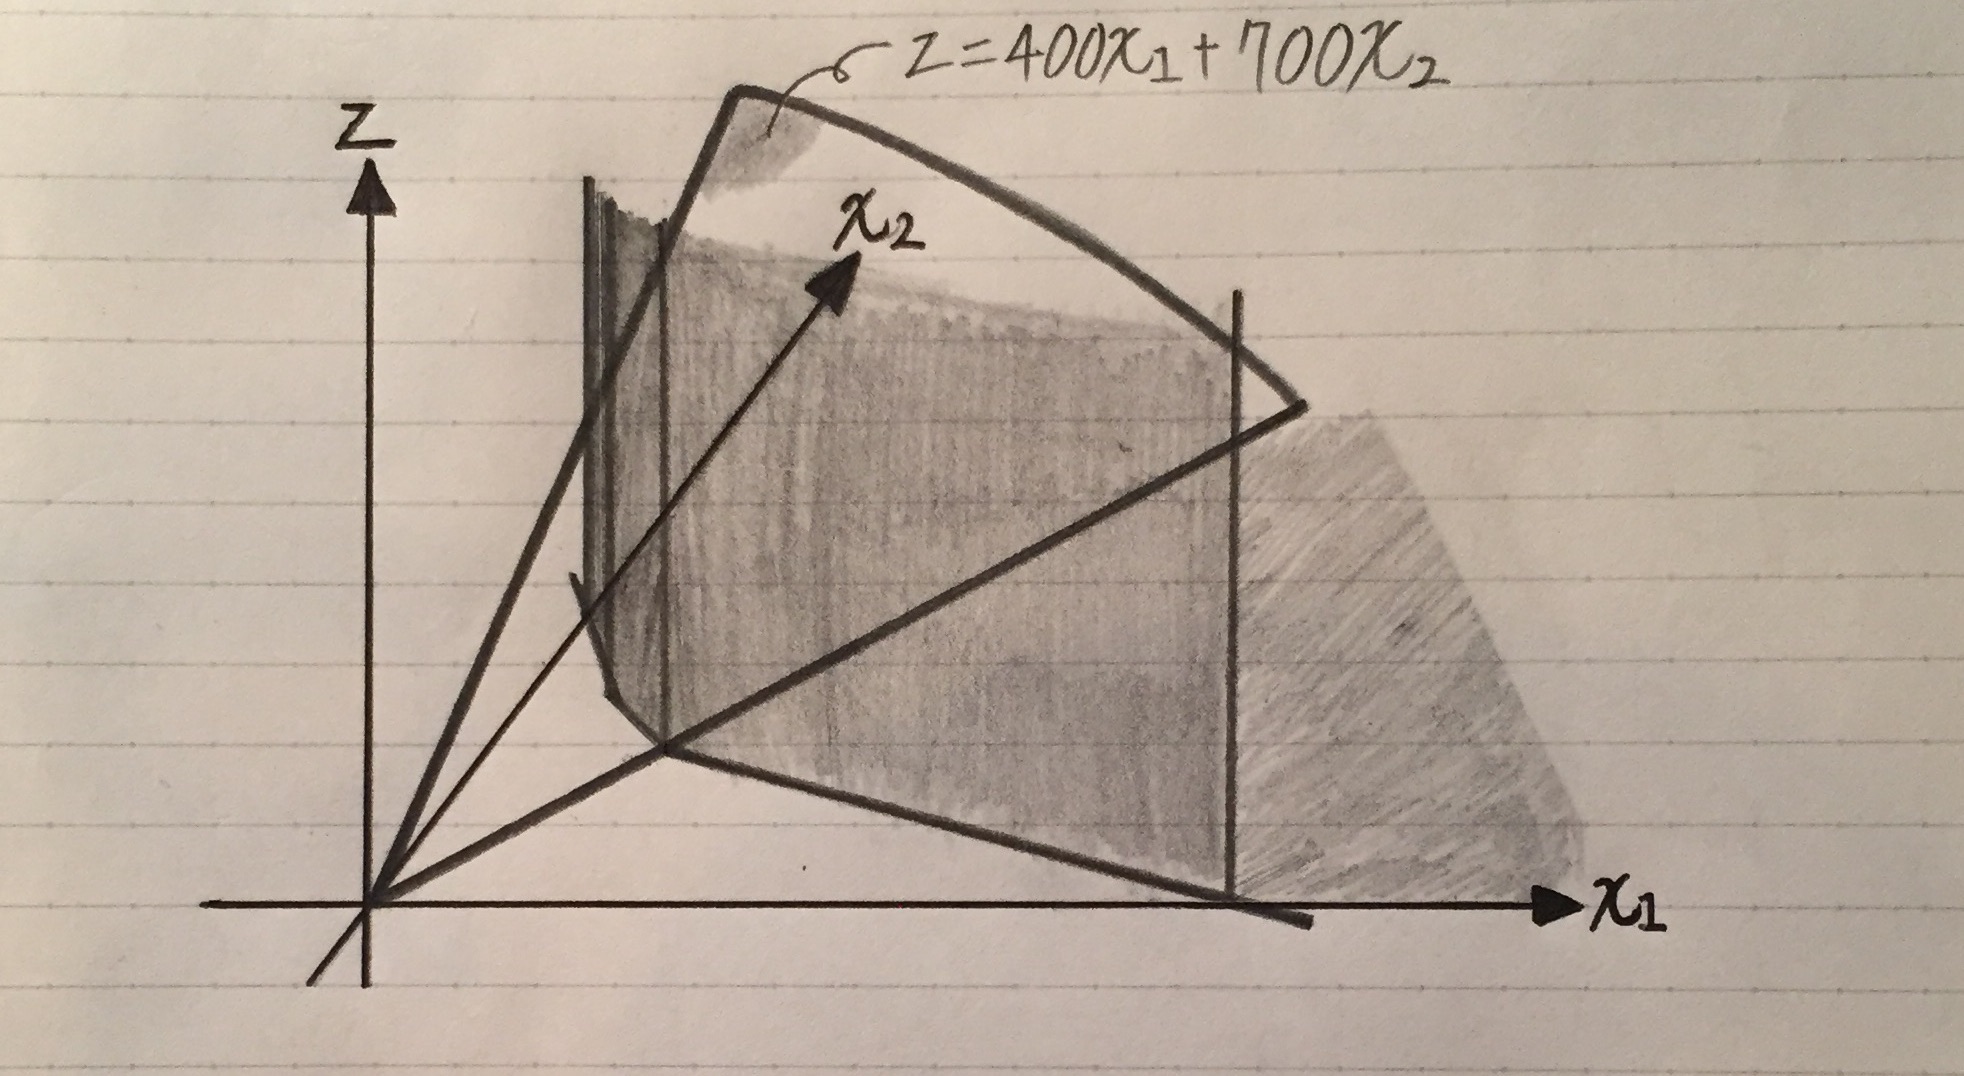 z=400x₁+700x₂
z
x₂
x₁